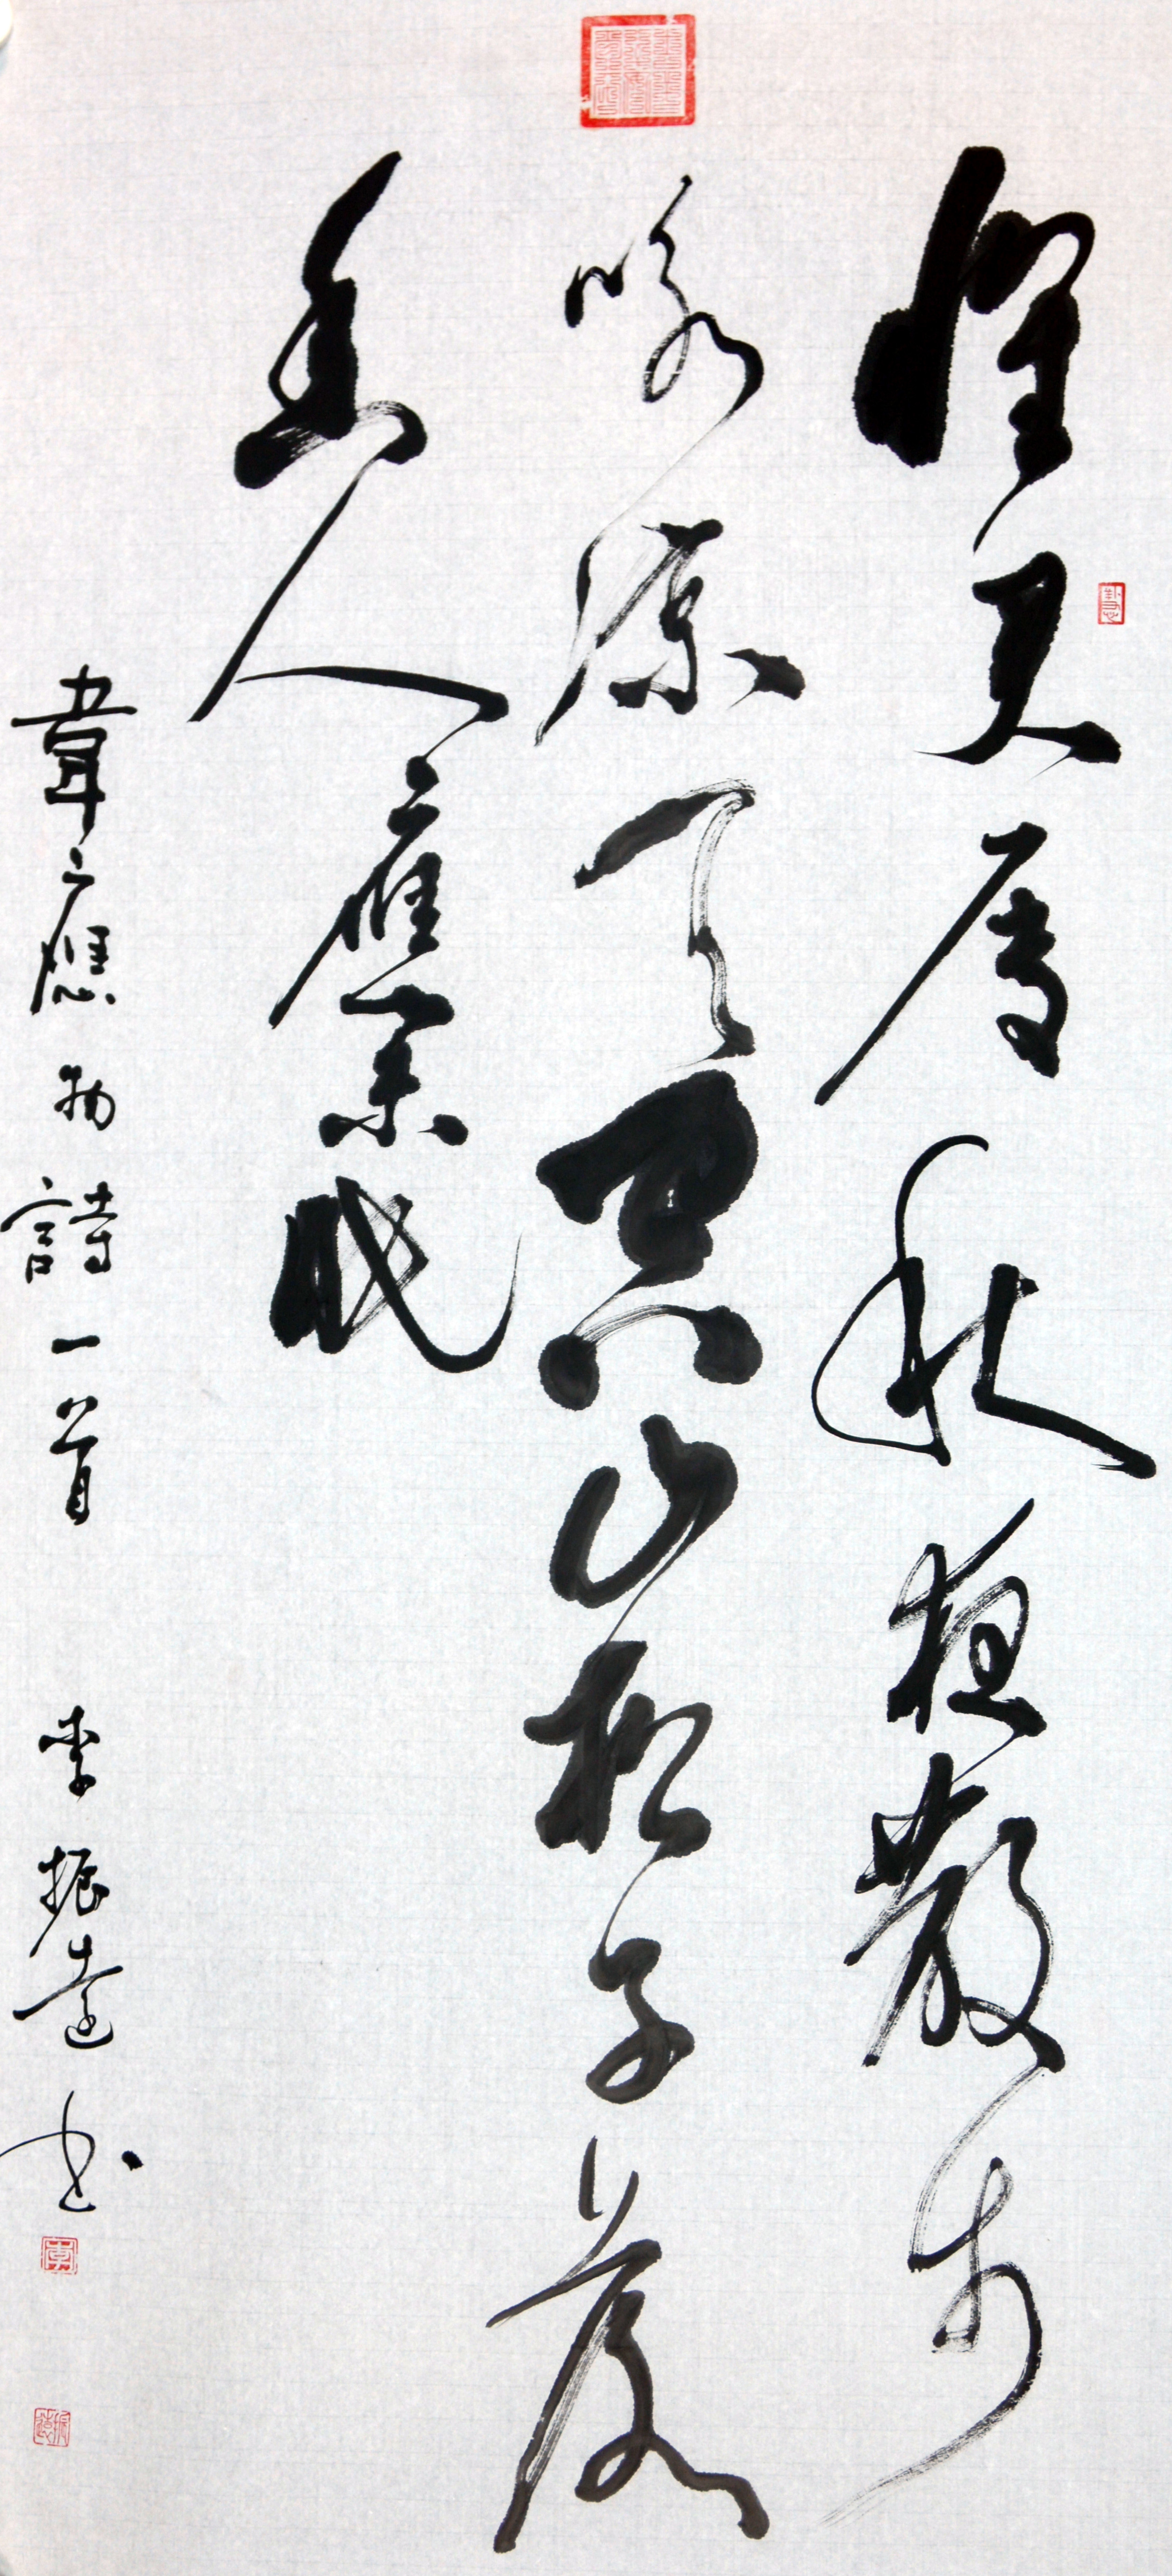 懷君屬秋夜散步
咏涼天空山松子落
幽人應未眠
韋應物詩一首 李振遠書